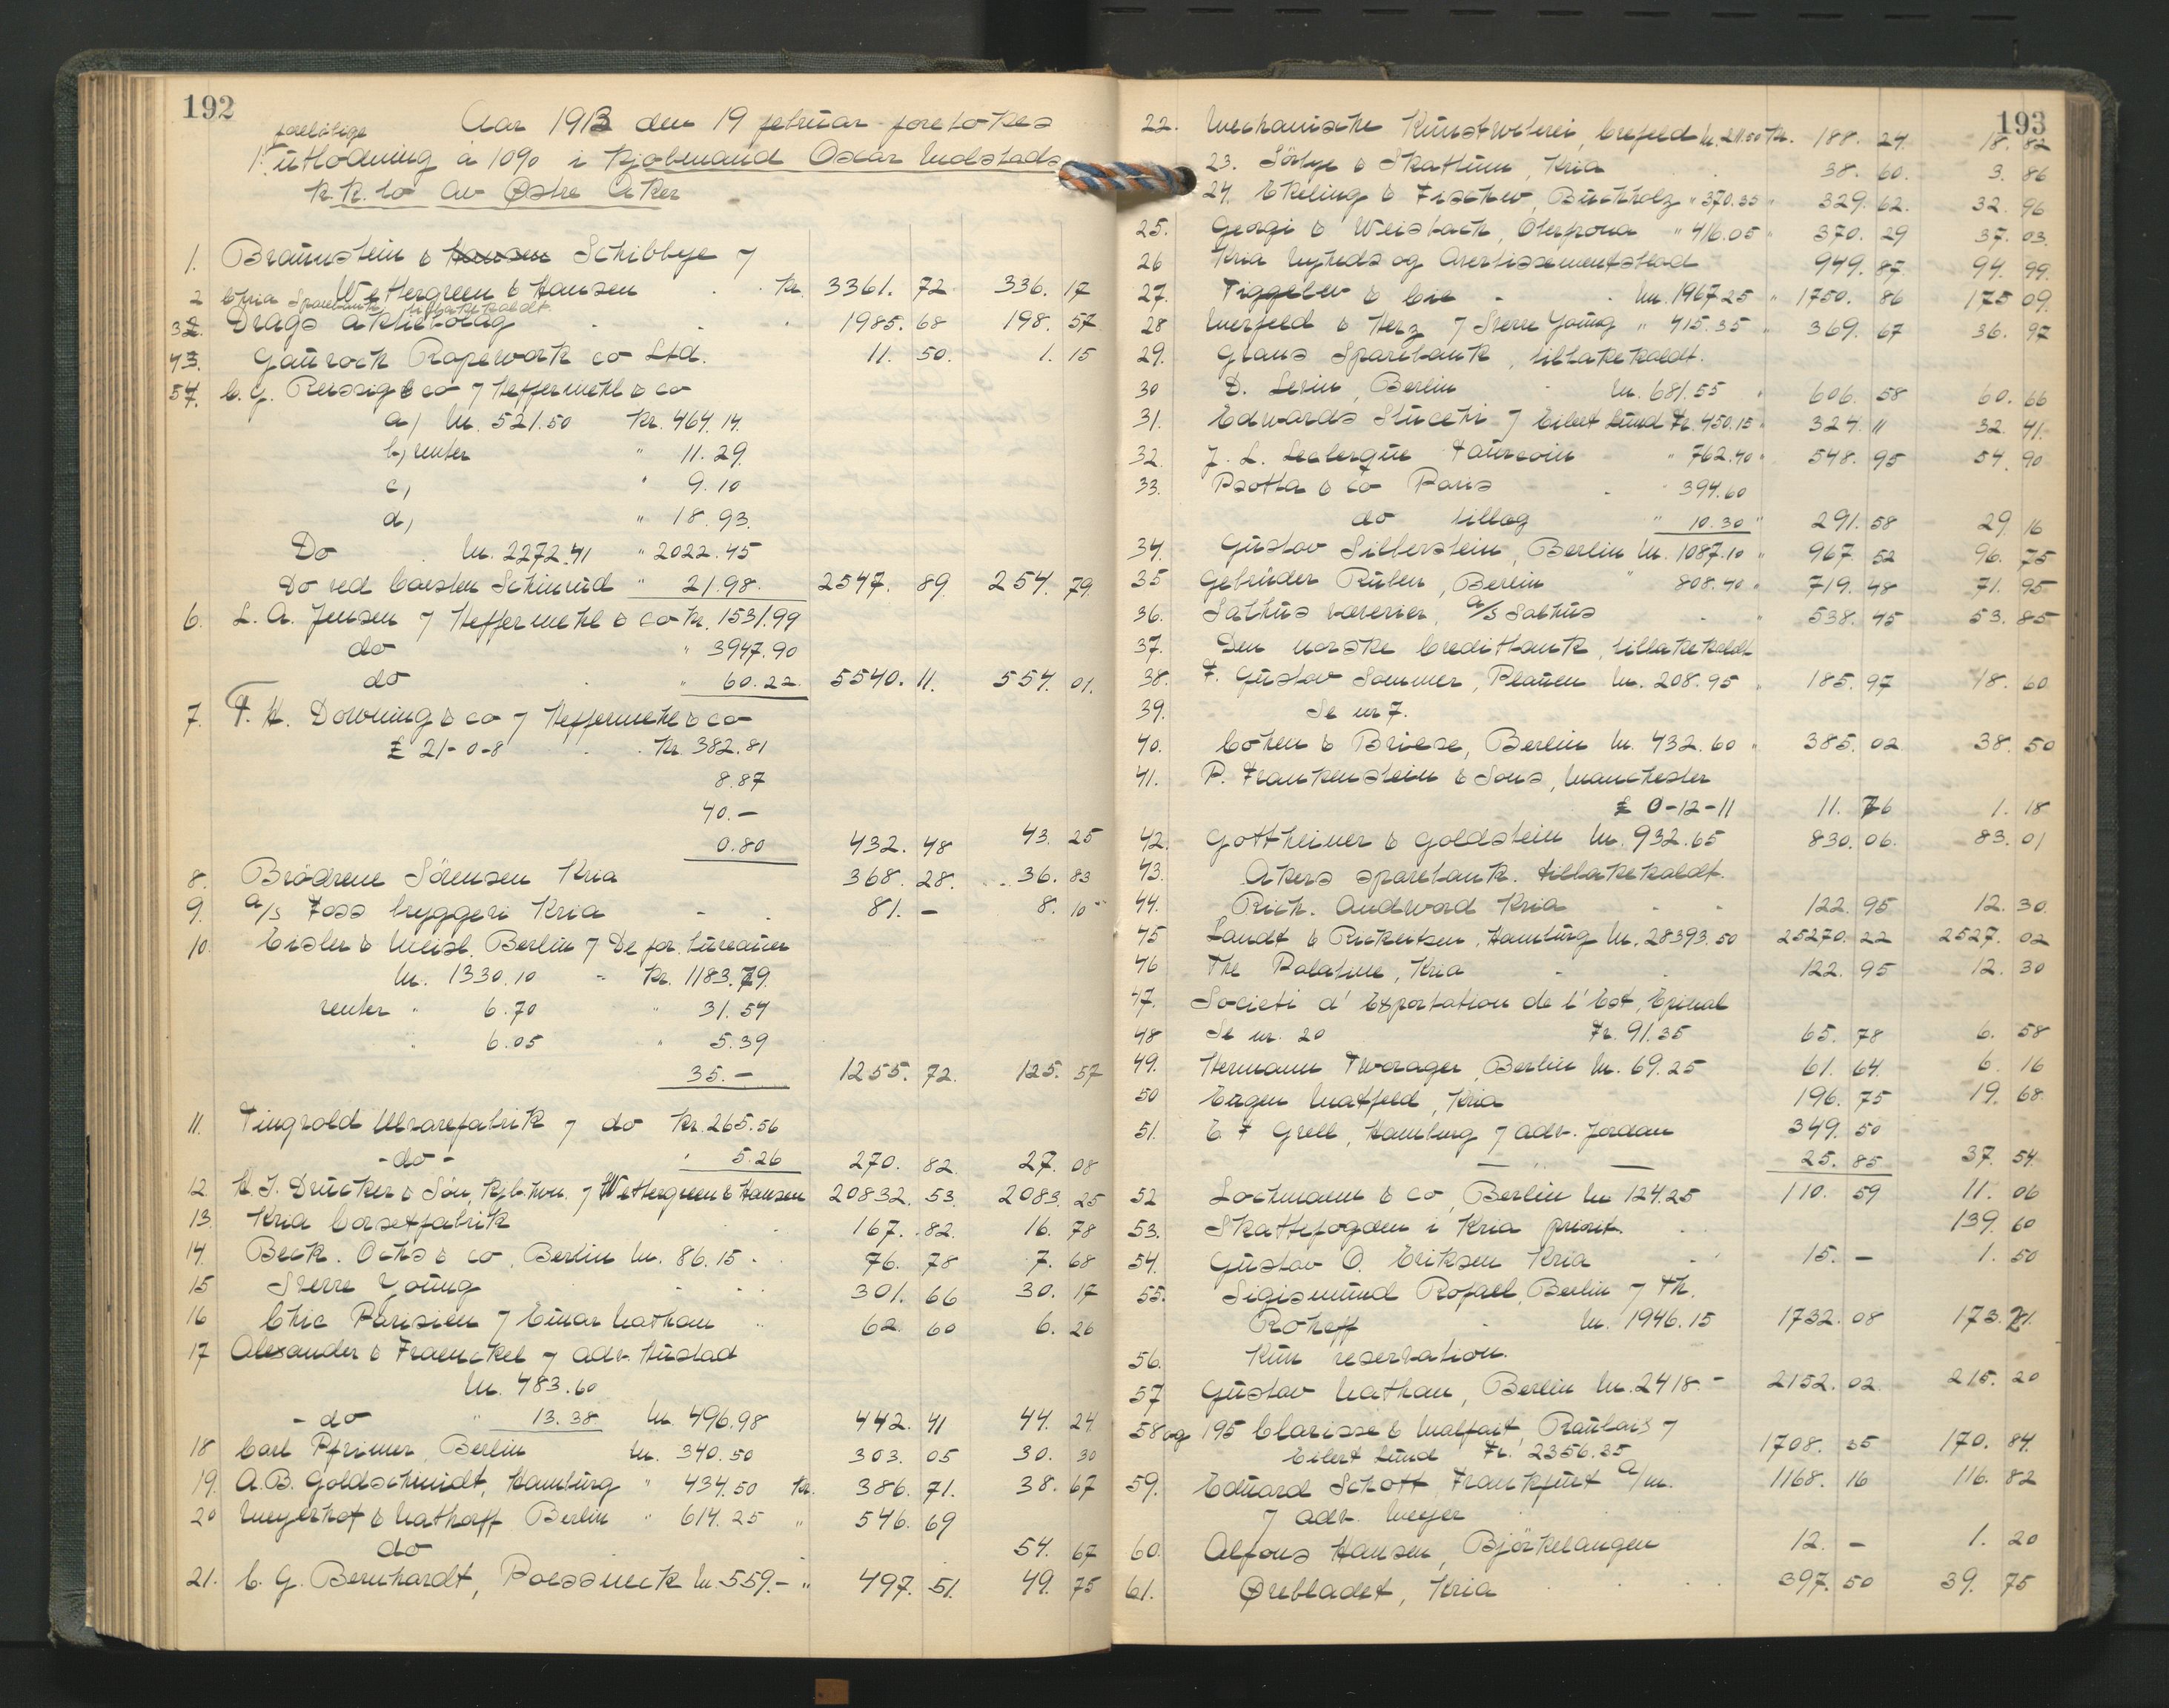 192
Aar 1913 den 19 februar foretokes
foreløbige
1. utlodning à 10% i kjøbmand Oscar Indstads
k.k.bo av Østre Aker
1. Braunstein & Hansen Schibbye 7
Wettergreen & Hansen . . Kr. 3361. 72. 336. 17
2 Chria Sparebank tilbakekaldt
32. Drags aktiebolag . . . 1985. 68 198. 57
43. Gaurock Ropework co Ltd. 11. 50. 1. 15
54. C. G. Reissig & co 7 Heffermehl & co
a) M. 521.50 Kr. 464.14.
b, renter " 11.29.
c, " 9.10
d, " 18.93.
Do . M. 2272.41 " 2022.45
Do ved Carsten Schinrud " 21.98. 2547. 89. 254. 79.
6. L. A. Jensen 7 Heffermehl & co Kr. 1531.99
do " 3947.90
do . " 60.22. 5540. 11. 554. 01.
7. F. H. Downing & co 7 Heffermehl & co
£ 21-0-8 . . Kr. 382.81
8.87
40.-
0.80 432. 48 43. 25
8. Brødrene Sørensen Kria 368. 28. 36. 83
9. a/s Foss bryggeri Kria - . 81. - 8. 10
10. Eisler & Meisl. Berlin 7 De for. bureauer
M. 1330.10 - Kr. 1183.79.
renter " 6.70 " 31.54
" 6.05 " 5.39
35.- 1255. 72. 125. 57
11. Tingvold Uldvarefabrik 7 do Kr. 265.56
- do - " 5.26 270. 82. 27. 08
12. H. J. Drucker & Søn, Kjb.hvn. 7 Wettergreen & Hansen 20832. 53. 2083. 25
13. Kria Corsetfabrik 167. 82. 16. 78
14. Beck. Ochs & co, Berlin M. 86.15 . 76. 78 7. 68
15 Sverre Young - . . 301. 66 30. 17
16 Chic Parisien 7 Einar Nathan .. 62. 60 6. 26
17 Alexander & Fraenckel 7 adv. Hustad
M. 483.60
- do " 13.38 M. 496.98 442. 41 44. 24.
18 Carl Pfrimer, Berlin M. 340.50 303. 05 30. 30
19. A.B. Goldschmidt, Hamburg " 434.50 Kr. 386. 71. 38. 67
20 Meyerhof & Nathorff Berlin " 614.25 " 546. 69
do . 54. 67
21. C. G. Bernhardt, Poessneck M. 559.- " 497. 51. 49. 75
193
22. Mechanische Kunstweberei, Crefeld M. 211.50 Kr. 188. 24. 18. 82
23. Sörbye & Skatrum, Kria . 38. 60. 3. 86
24. Ekeling & Fischer, Buchholz " 370.35 " 329. 62. 32. 96
25. Georgi & Weisbach, Oberfrona " 416.05 " 370. 29 37. 03.
26 Kria Nyheds og Avertissementsblad 949. 87. 94. 99.
27. Tiggeler & Cie - . M. 1967.25 " 1750. 86 175 09.
28 Merfeld & Herz 7 Sverre Young " 415.35 " 369. 67 36. 97
29. Grans Sparebank, tilbakekaldt.
30 D. Levin, Berlin . M. 681.55 . 606. 58 60. 66
31. Edwards Stucchi 7 Eilert Lund Fr. 450.15 " 324. " 32. 41.
32. J. L. Leclerqiu Taurcoin " 762.40 " 548. 95 54. 90
33. Psotta & co Paris . " 394.60
do tillæg " 10.30 " 291. 58 29. 16
34. Gustav Silberstein, Berlin M. 1087.10 " 967. 52 96. 75
35 Gebrüder Ruben, Berlin " 808.40 " 719. 48 71. 95
36. Salhus Væverier, a/s Salhus . . 538. 45 53. 85
37. Den norske Creditbank, tilbakekaldt
38. F. Gustav Sommer, Plauen M. 208.95 . 185. 97 18. 60
39. Se nr 7.
40. Cohen & Briese, Berlin M. 432.60 " 385. 02 38. 50
41. P. Frankenstein & Sons, Manchester
£ 0-12-11 11. 76 1. 18
42. Gottheimer & Goldstein M. 932.65 830. 06. 83. 01
43. Akers sparebank. tilbakekaldt.
44. Rich. Andvord Kria - - 122. 95 12. 30.
45 Landt & Rickertsen, Hamburg M. 28393.50 25270. 22 2527. 02
46 The Palatine, Kria - . 122. 95 12. 30
47. Societi d' Exportation de l' Est, Epinal
48 Se nr. 20 Fr. 91.35 65. 78 6. 58
49. Hermann Tworager, Berlin M. 69.25 61. 64. 6. 16
50 Eugen Matfeld, Kria 196. 75 19. 68.
51. C F Grell, Hamburg 7 adv. Jordan 349. 50
— " — 25. 85 37. 54.
52 Lochmann & co, Berlin M 124.25 110. 59 11. 06
53. Skattefogden i Kria priorit. . 139. 60
54. Gustav O. Eriksen Kria - 15. - 1. 50
55. Sigismund Rofael, Berlin 7 Th.
Roheff - M. 1946.15 1732. 08 173. 21.
56. Kun reservation.
57 Gustav Nathan, Berlin M. 2418.- 2152. 02. 215. 20
58 og 195 Clarisse & Malfait, Raubais 7
Eilert Lund Fr. 2356.25 1708. 35 170. 84.
59. Eduard Schott Frankfurt a/m. 1168. 16 116. 82
7 adv. Meyer
60. Alfons Hansen, Bjørkelangen 12. - 1. 20
61. Ørebladet, Kria . . . 397. 50 39. 75